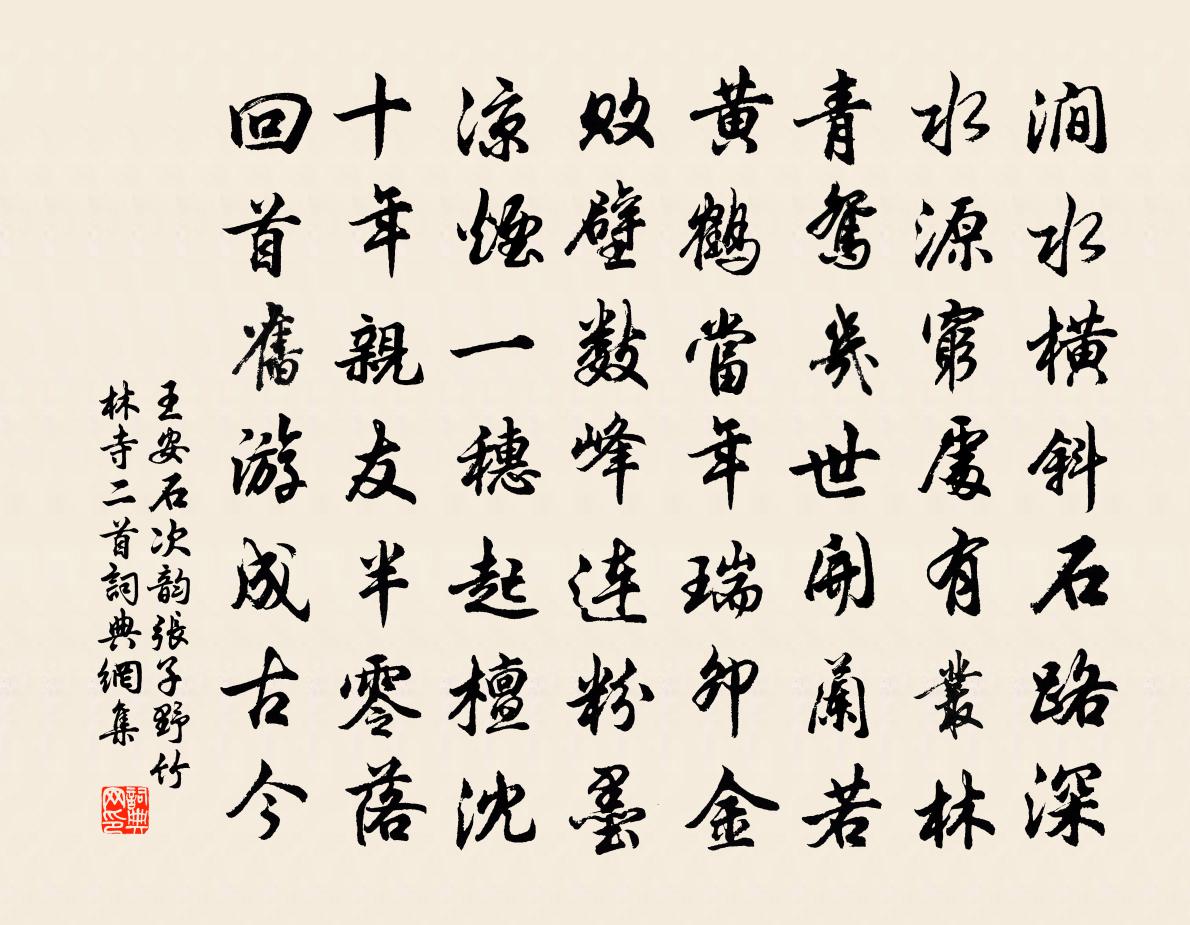 澗水橫斜石路深
水源窮處有叢林
青鴛幾世開蘭若
黃鶴當年瑞卯金
敗壁數峰連粉墨
涼煙一穗起檀沈
十年親友半零落
回首舊游成古今
王安石次韵張子野竹
林寺二首詞典網集
詞典
网印